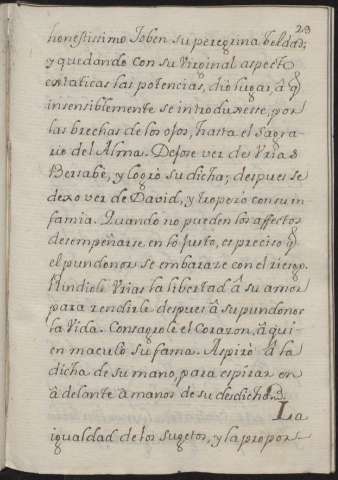 23
honestissimo Joben su peregrina beldad;
y quedando con su Virginal aspecto
extaticas las potencias, dio lugar, â q̃
insensiblemente se introduxesse, por
las brechas de los ojos, hasta el Sagra-
rio del Alma. Dejose ver de Vrias
Bersabè, y logrò su dicha; despues se
dexo ver de David, y tropezò con su in
famia. Quando no pueden los affectos
desempeñarse en lo justo, es preciso q̃
el pundonor se embaraze con el riesgo.
Rindiole Vrias la libertad â su amor
para rendirle despues â su pundonor
la Vida. Consagrole el Corazon, â qui-
en maculò su fama. Aspirò â la
dicha de su mano, para espirar en
â delante â manos de su desdicha.
La
igualdad de los sugetos, y la propor-